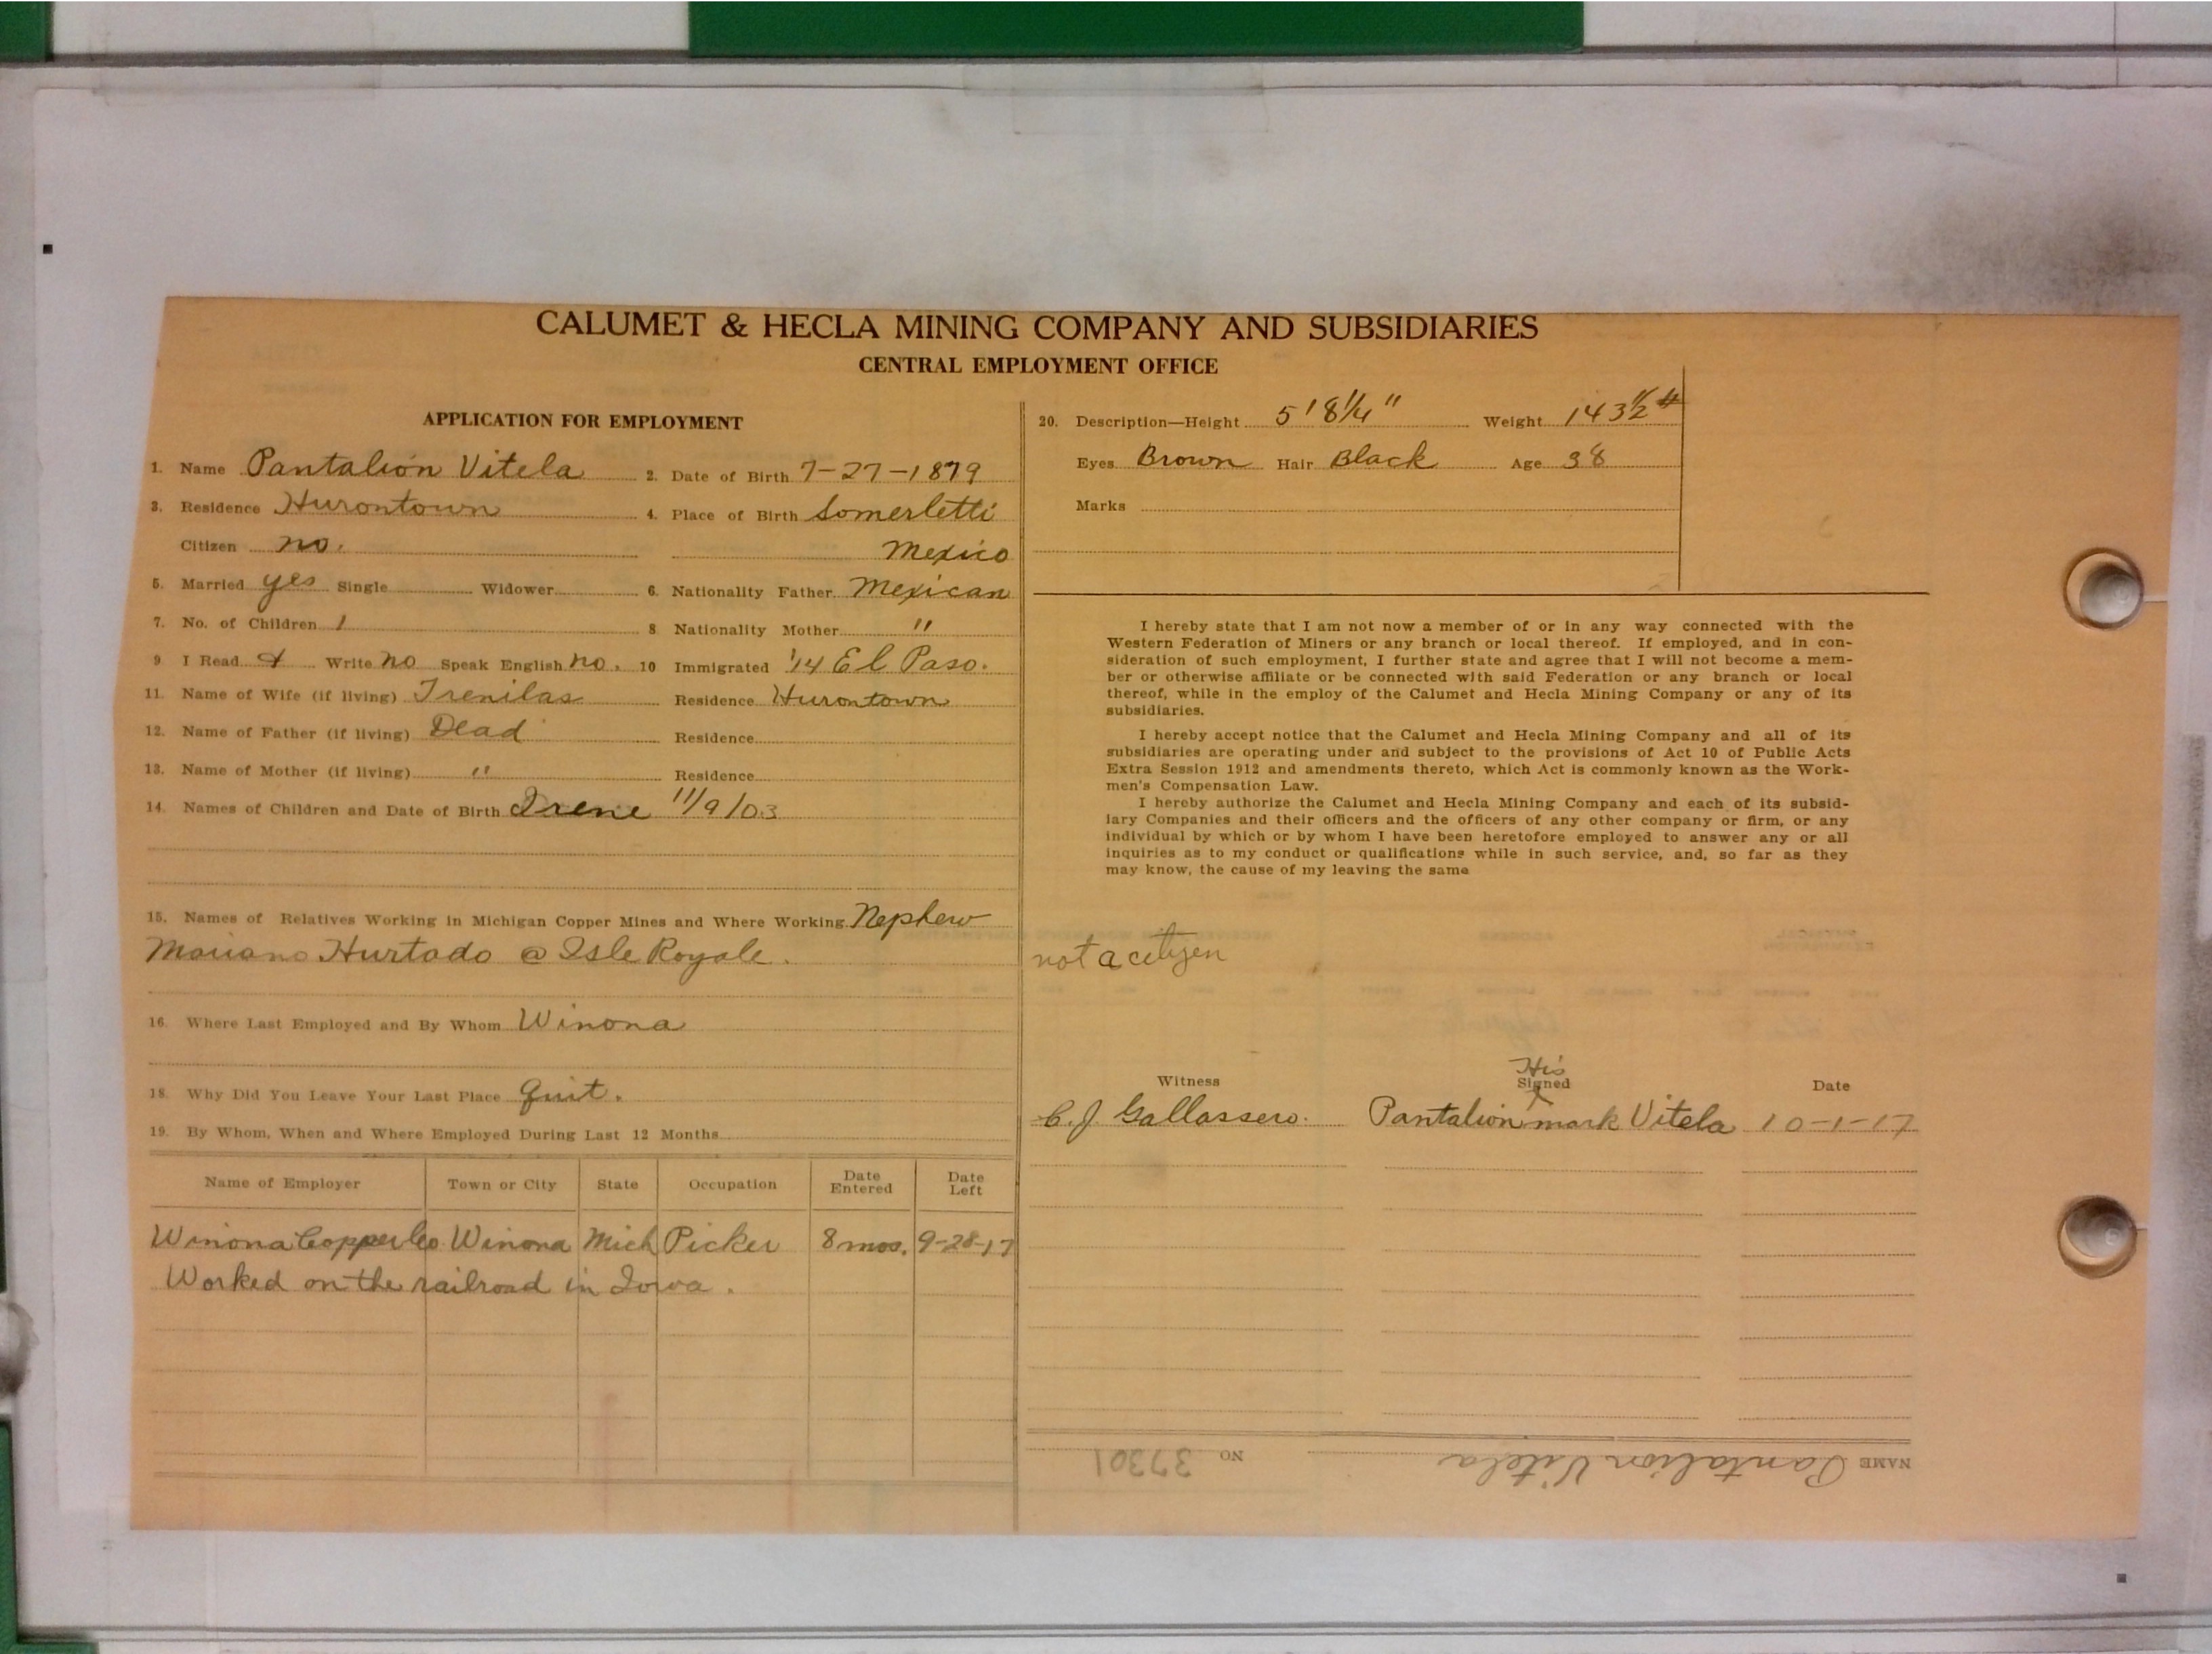 CALUMET & HECLA MINING COMPANY AND SUBSIDIARIES
CENTRAL EMPLOYMENT OFFICE
APPLICATION FOR EMPLOYMENT
1. Name Pantalion Vitela 2. Date of Birth 7-27-1879
3. Residence Hurontown 4. Place of Birth Somerletti
Citizen no. Mexico
5. Married yes Single Widower 6. Nationality Father Mexican
7. No. of Children 1 8 Nationality Mother "
9 I Read & Write no Speak English no. 10 Immigrated '14 El Paso.
11. Name of Wife (if living) Trenilas Residence Hurontown
12. Name of Father (if living) Dead Residence
13. Name of Mother (if living) " Residence
14. Names of Children and Date of Birth Irene 11/9/03
15. Names of Relatives Working in Michigan Copper Mines and Where Working Nephew
Mariano Hurtado @ Isle Royale.
16. Where Last Employed and By Whom Winona
18. Why Did You Leave Your Last Place Quit.
19. By Whom, When and Where Employed During Last 12 Months
Name of Employer Town or City State Occupation Date Entered Date Left
Winona Copper Co Winona Mich Picker 8 mos. 9-28-17
Worked on the railroad in Iowa.
20. Description—Height 5' 8 1/4" Weight 143 1/2 #
Eyes Brown Hair Black Age 38
Marks
I hereby state that I am not now a member of or in any way connected with the
Western Federation of Miners or any branch or local thereof. If employed, and in con-
sideration of such employment, I further state and agree that I will not become a mem-
ber or otherwise affiliate or be connected with said Federation or any branch or local
thereof, while in the employ of the Calumet and Hecla Mining Company or any of its
subsidiaries.
I hereby accept notice that the Calumet and Hecla Mining Company and all of its
subsidiaries are operating under and subject to the provisions of Act 10 of Public Acts
Extra Session 1912 and amendments thereto, which Act is commonly known as the Work-
men's Compensation Law.
I hereby authorize the Calumet and Hecla Mining Company and each of its subsid-
iary Companies and their officers and the officers of any other company or firm, or any
individual by which or by whom I have been heretofore employed to answer any or all
inquiries as to my conduct or qualifications while in such service, and, so far as they
may know, the cause of my leaving the same
not a citizen
His
Witness Signed Date
C. J. Gallassero. Pantalion X mark Vitela 10-1-17
NAME Pantalion Vitela NO 37301